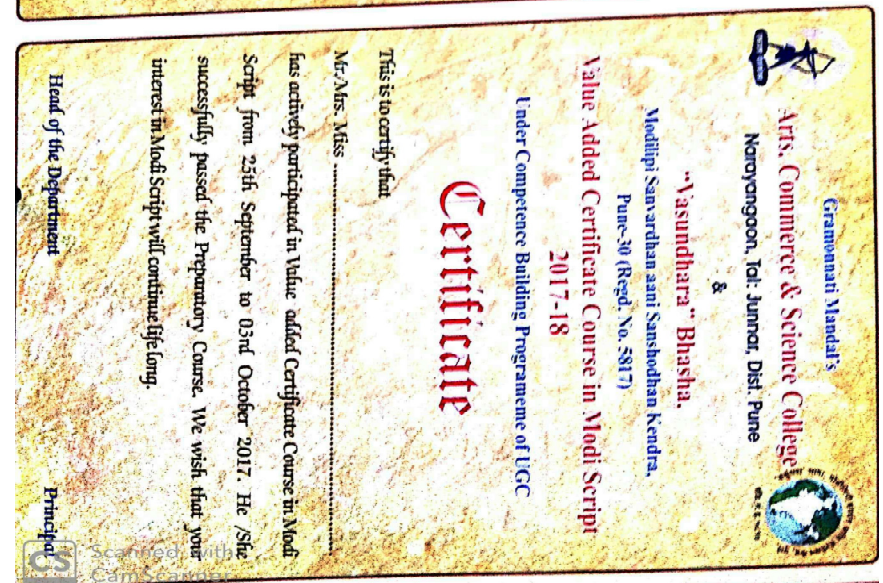 Gramonnati Mandal's
Arts, Commerce & Science College
Narayangaon, Tal: Junnar, Dist. Pune
&
"Vasundhara" Bhasha,
Modilipi Sanvardhan aani Sanshodhan Kendra,
Pune-30 (Regd. No. 5817)
Value Added Certificate Course in Modi Script
2017-18
Under Competence Building Programeme of UGC
Certificate
This is to certify that
Mr./Mrs. Miss ................................................
has actively participated in Value added Certificate Course in Modi
Script from 25th September to 03rd October 2017. He /She
successfully passed the Preparatory Course. We wish that your
interest in Modi Script will continue life long.
Head of the Department Principal
CS Scanned with
CamScanner